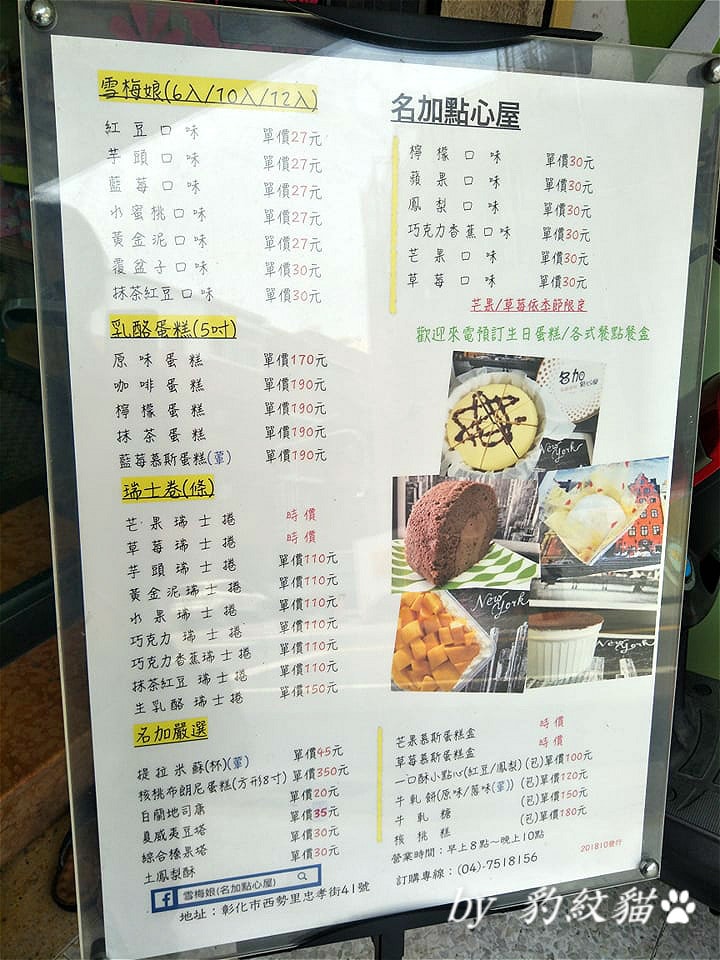 雪梅娘(6入/10入/12入)
紅豆口味 單價27元
芋頭口味 單價27元
藍莓口味 單價27元
水蜜桃口味 單價27元
黃金泥口味 單價27元
覆盆子口味 單價30元
抹茶紅豆口味 單價30元
乳酪蛋糕(5吋)
原味蛋糕 單價170元
咖啡蛋糕 單價190元
檸檬蛋糕 單價190元
抹茶蛋糕 單價190元
藍莓慕斯蛋糕(葷) 單價190元
瑞士卷(條)
芒果瑞士捲 時價
草莓瑞士捲 時價
芋頭瑞士捲 單價110元
黃金泥瑞士捲 單價110元
水果瑞士捲 單價110元
巧克力瑞士捲 單價110元
巧克力香蕉瑞士捲 單價110元
抹茶紅豆瑞士捲 單價110元
生乳酪瑞士捲 單價150元
名加嚴選
提拉米蘇(杯)(葷) 單價45元
核桃布朗尼蛋糕(方形8寸) 單價350元
白蘭地司康 單價20元
夏威夷豆塔 單價35元
綜合榛果塔 單價30元
土鳳梨酥 單價30元
雪梅娘(名加點心屋)
地址：彰化市西勢里忠孝街41號
名加點心屋
檸檬口味 單價30元
蘋果口味 單價30元
鳳梨口味 單價30元
巧克力香蕉口味 單價30元
芒果口味 單價30元
草莓口味 單價30元
芒果/草莓依季節限定
歡迎來電預訂生日蛋糕/各式餐點餐盒
名加
點心屋
New York
New York
New York
芒果慕斯蛋糕盒 時價
草莓慕斯蛋糕盒 時價
一口酥小點心(紅豆/鳳梨) (包)單價100元
牛軋餅(原味/蔥味(葷)) (包)單價120元
牛軋糖 (包)單價150元
核桃糕 (包)單價180元
營業時間：早上8點～晚上10點
201810發行
訂購專線：(04)-7518156
by 豹紋貓